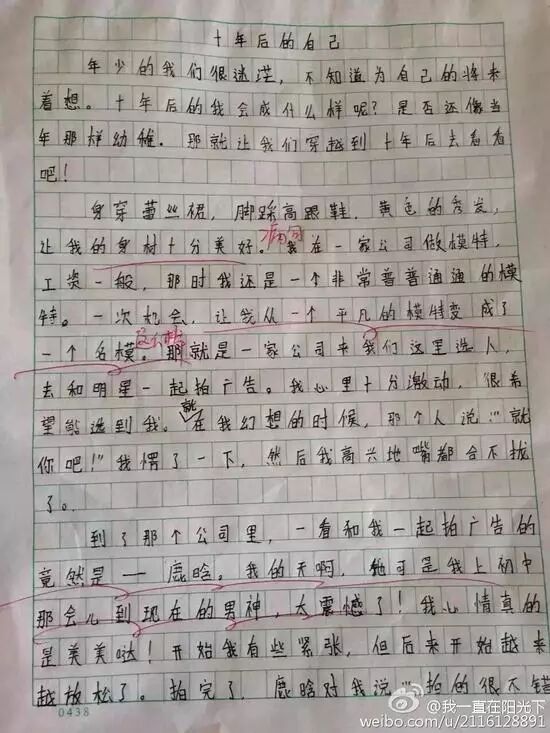 十年后的自己
年少的我们很迷茫，不知道为自己的将来
着想。十年后的我会成什么样呢？是否还像当
年那样幼稚．那就让我们穿越到十年后去看看
吧！
身穿蕾丝裙，脚踩高跟鞋，黄色的秀发，
让我的身材十分美好。我在一家公司做模特，
病句
工资一般，那时我还是一个非常普普通通的模
特。一次机会，让我从一个平凡的模特变成了
一个名模。那就是一家公司来我们这里选人，
去和明星一起拍广告。我心里十分激动，很希
望能选到我。就在我幻想的时候，那个人说："就
你吧！"我愣了一下，然后我高兴地嘴都合不拢
了。
到了那个公司里，一看和我一起拍广告的
竟然是——鹿晗。我的天啊，他可是我上初中
那会儿到现在的男神，太震憾了！我心情真的
是美美哒！开始我有些紧张，但后来开始越来
越放松了。拍完了，鹿晗对我说："拍的很不错
0438
@我一直在阳光下
weibo.com/u/2116128891